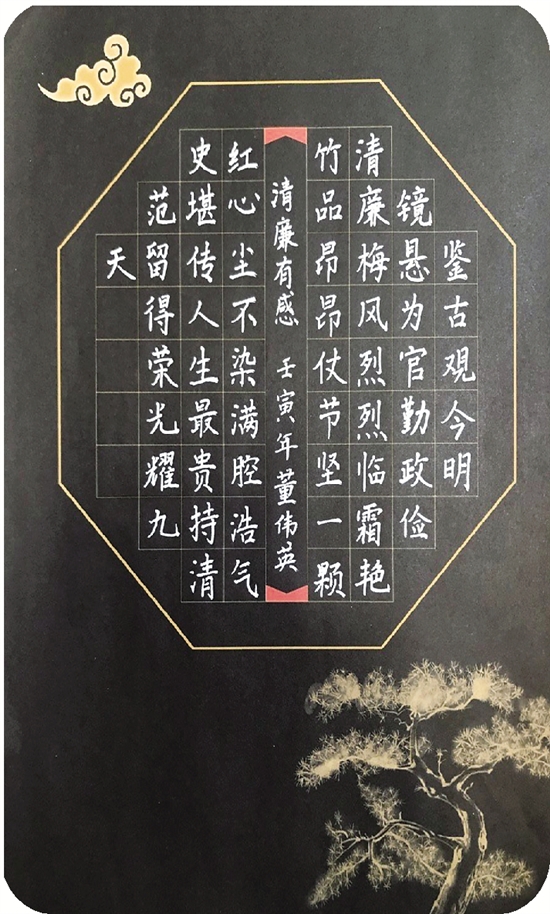 鉴古观今明
镜悬为官勤政俭
清廉梅风烈烈临霜艳
竹品昂昂仗节坚一颗
清廉有感 壬寅年董伟英
红心尘不染满腔浩气
史堪传人生最贵持清
范留得荣光耀九
天